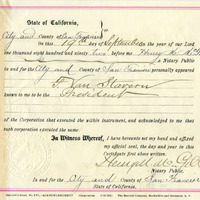 State of California,
City and County of San Francisco
On this 19th day of September in the year of our Lord
one thousand eight hundred and ninety two before me Henry
a Notary Public
in and for the City and County of San Francisco personally
appeared
known to me to be the President
of the Corporation that executed the within instrument, and acknowledged to me that
such corporation executed the same.
In Witness Whereof, I have hereunto set my hand and affixed
my official seal, the day and year in this
Certificate first above written.
Notary Public,
In and for the City and County of San Francisco
State of California.